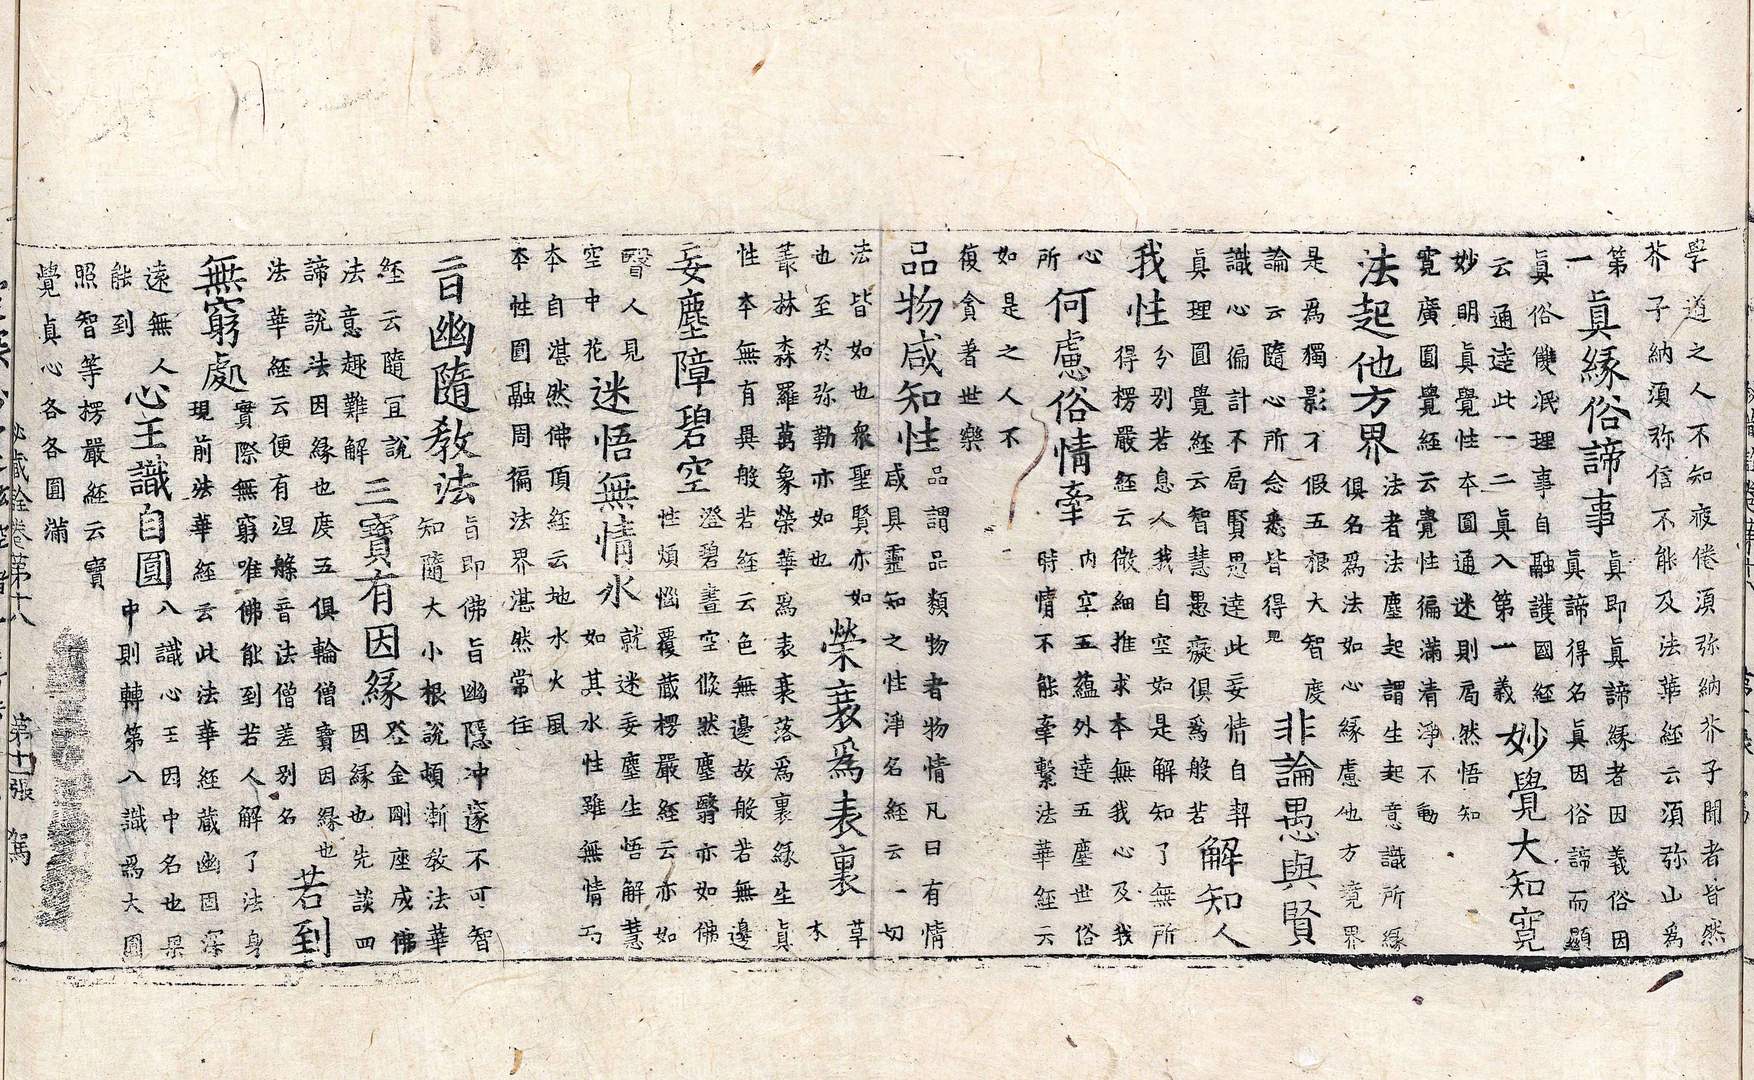 學道之人不知疲倦須弥納芥子聞者皆然
芥子納須弥信不能及法華經云須弥山為
第
一
真緣俗諦事
真即真諦緣者因義俗因
真諦得名真因俗諦而顯
真俗雙泯理事自融護國經
云通達此一二真入第一義
妙覺大知寬
妙明真覺性本圓通迷則局然悟知
寬廣圓覺經云覺性徧滿清淨不動
法起他方界
法者法塵起謂生起意識所緣
俱名為法如心緣慮他方境界
是為獨影不假五根大智度
論云隨心所念悉皆得見
非論愚與賢
識心徧計不局賢愚達此妄情自契
真理圓覺經云智慧愚癡俱為般若
解知人
我性
分別若息人我自空如是解知了無所
得楞嚴經云微細推求本無我心及我
心
所
何慮俗情牽
內空五蘊外達五塵世俗
時情不能牽繫法華經云
如是之人不
復貪著世樂
品物咸知性
品謂品類物者物情凡曰有情
咸具靈知之性淨名經云一切
法皆如也衆聖賢亦如
也至於弥勒亦如也
榮衰為表裏
草
木
叢林森羅萬象榮華為表衰落為裏緣生真
性本無有異般若經云色無邊故般若無邊
妄塵障碧空
澄碧晝空倐然塵翳亦如佛
性煩惱覆蔵楞嚴經云亦如
翳人見
空中花
迷悟無情水
就迷妄塵生悟解慧
如其水性雖無情巧
本自湛然佛頂經云地水火風
本性圓融周徧法界湛然常住
旨幽隨教法
旨即佛旨幽隱冲邃不可智
知隨大小根說頓漸教法華
經云隨宜說
法意趣難解
三寶有因緣
登金剛座成佛
因緣也先談四
諦說法因緣也度五俱輪僧寶因緣也
法華經云便有涅槃音法僧差別名
若到
無窮處
實際無窮唯佛能到若人解了法身
現前法華經云此法華經蔵幽固深
遠無人
能到
心王識自圓
八識心王因中名也果
中則轉第八識為大圓
照智等楞嚴經云寶
覺真心各各圓滿
秘藏詮卷第十八 第十一張 駕